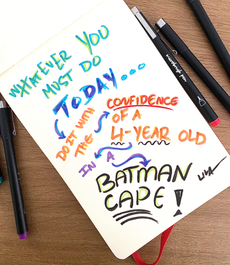 WHATEVER YOU
MUST DO
TODAY...
DO IT WITH
THE
CONFIDENCE
OF A
4-YEAR OLD
IN A
BATMAN
CAPE!